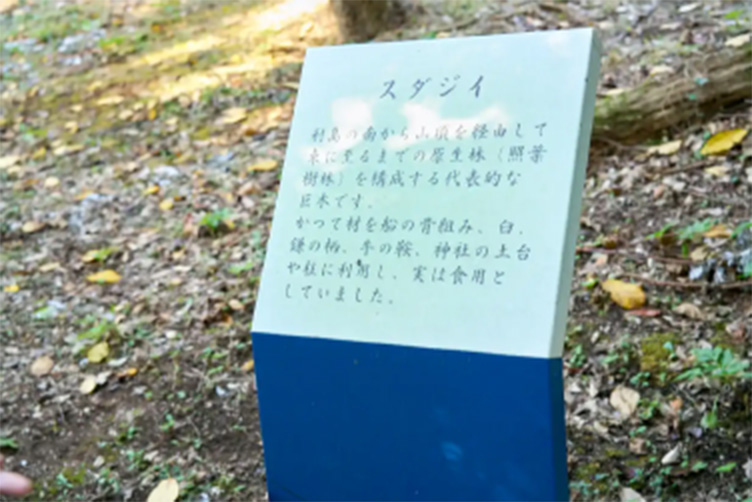 スダジイ
村島の南から山頂を経由して
東に至るまでの原生林（照葉
樹林）を構成する代表的な
巨木です。
かつて材を船の骨組み、臼、
鎌の柄、牛の鞍、神社の土台
や柱に利用し、実は食用と
していました。